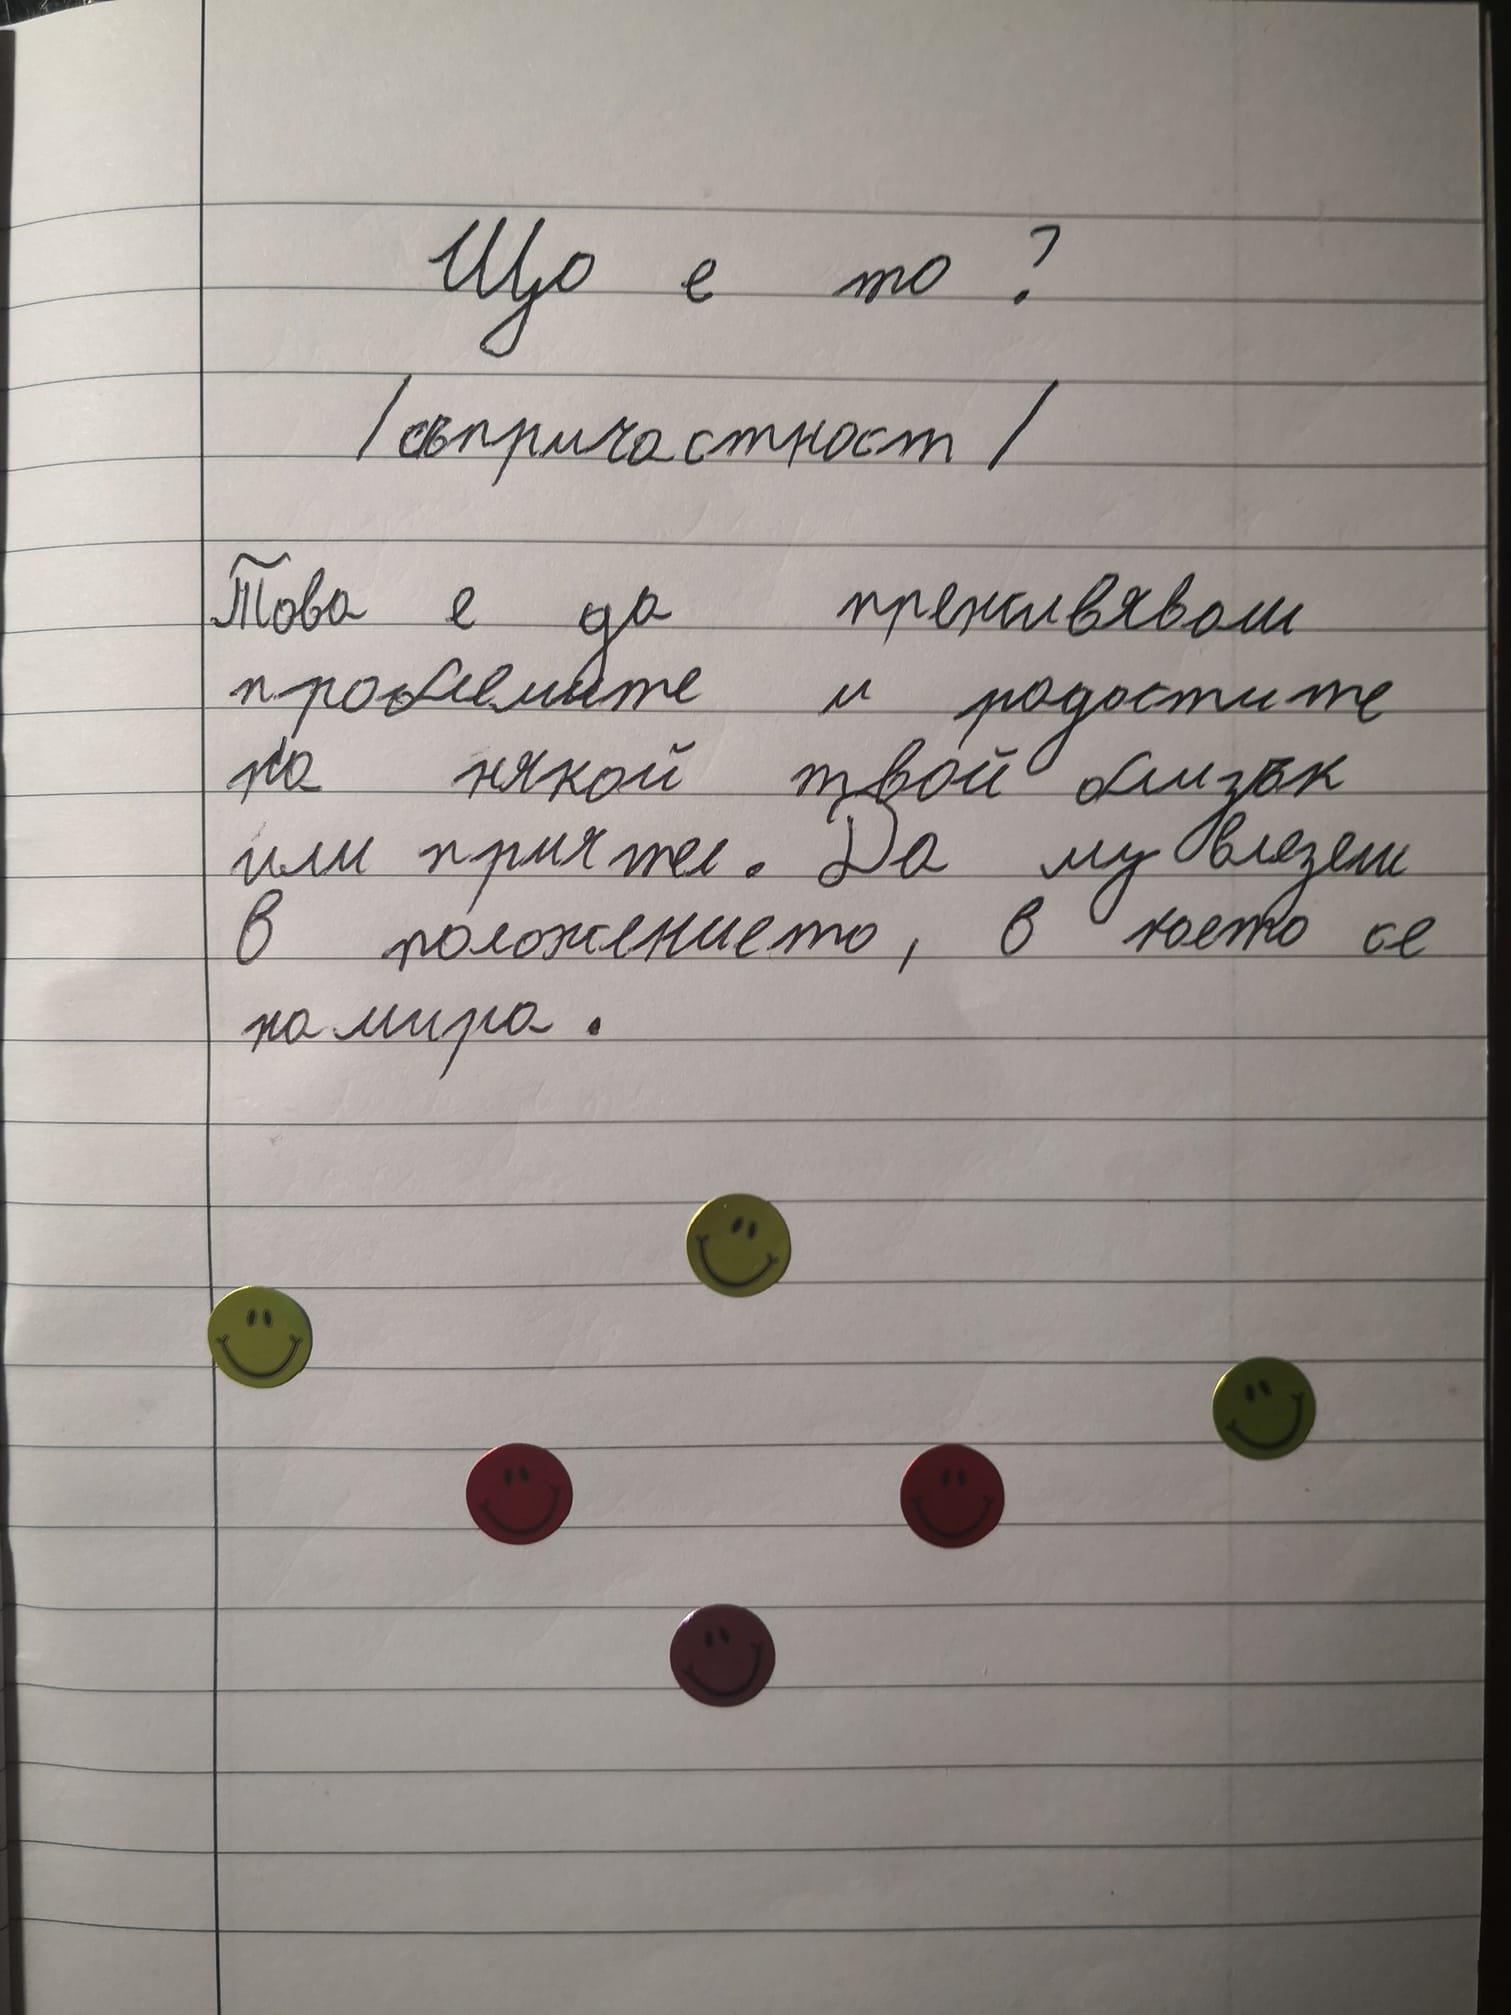 Що е то?
/съпричастност/
Това е да преживяваш
проблемите и радостите
на някой твой близък
или приятел. Да му влезеш
в положението, в което се
намира.